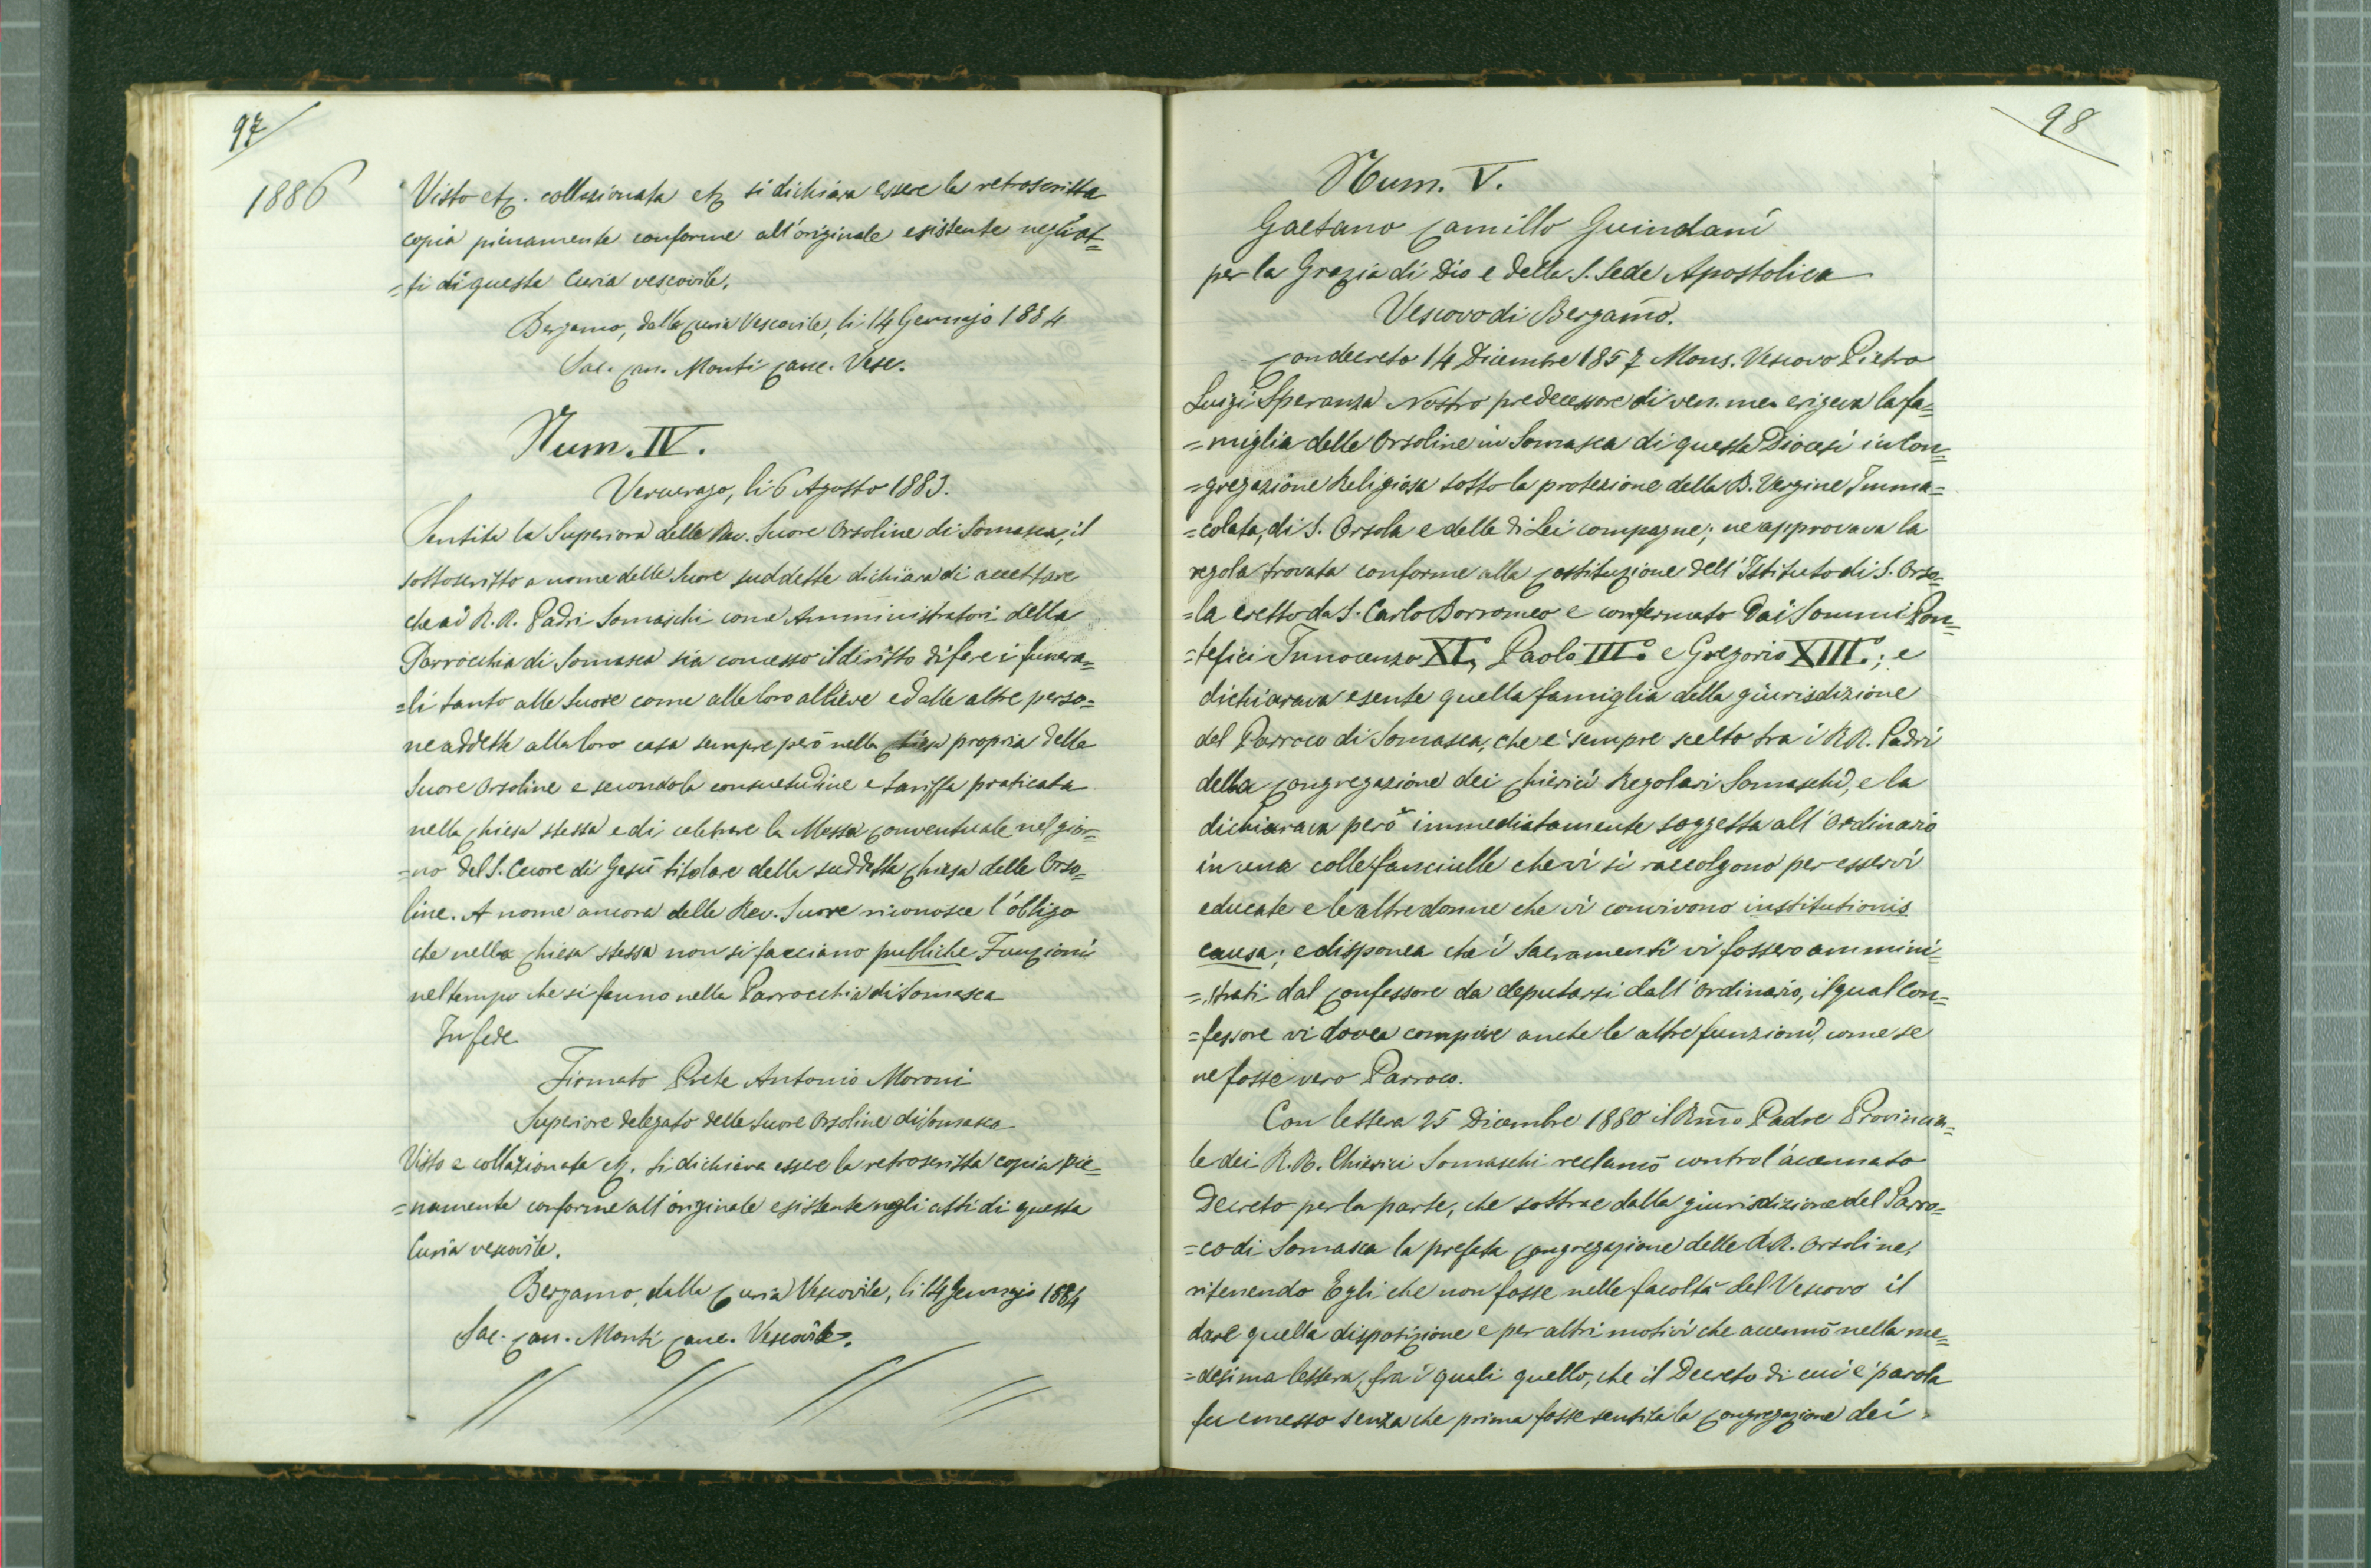 97
1886
Visto etc. collazionata etc si dichiara essere la retroscritta
copia pienamente conforme all'originale esistente negli at=
=ti di questa Curia vescovile.
Bergamo, dalla Curia Vescovile, li 14 Gennajo 1884
Sac. Can. Monti Canc. Vesc.
Num. IV.
Vercurago, li 6 Agosto 1883.
Sentita la Superiora delle Rev. Suore Orsoline di Somasca, il
sottoscritto a nome delle Suore suddette dichiara di accettare
che ai R.R. Padri Somaschi come Amministratori della
Parrocchia di Somasca sia concesso il diritto di fare i funera=
=li tanto alle Suore come alle loro allieve ed alle altre perso=
ne addette alla loro casa sempre però nella Chiesa propria delle
Suore Orsoline e secondo la consuetudine e tariffa praticata
nella Chiesa stessa e di celebrare la Messa Conventuale nel gior=
=no del S. Cuore di Gesù titolare della suddetta Chiesa delle Orso=
line. A nome ancora delle Rev. Suore riconosce l'obbligo
che nella Chiesa stessa non si facciano publiche Funzioni
nel tempo che si fanno nella Parrocchia di Somasca
In fede
Firmato Prete Antonio Moroni
Superiore delegato delle Suore Orsoline di Somasca
Visto e collazionata etc. si dichiara essere la retroscritta copia pie=
=namente conforme all'originale esistente negli atti di questa
Curia vescovile.
Bergamo, dalla Curia Vescovile, li 14 Gennajo 1884
Sac. Can. Monti Canc. Vescovile.
98
Num. V.
Gaetano Camillo Guindani
per la Grazia di Dio e della S. Sede Apostolica
Vescovo di Bergamo.
Con decreto 14 Dicembre 1857 Mons. Vescovo Pietro
Luigi Speranza Nostro predecessore di ven. mem. erigeva la fa=
=miglia delle Orsoline in Somasca di questa Diocesi in Con=
=gregazione Religiosa sotto la protezione della B. Vergine Imma=
=colata, di S. Orsola e delle di Lei compagne; ne approvava la
regola trovata conforme alla Costituzione dell'Istituto di S. Orso=
=la eretto da S. Carlo Borromeo e confermato dai Sommi Pon=
=tefici Innocenzo XI, Paolo III.° e Gregorio XIII.°; e
dichiarava esente quella famiglia della giurisdizione
del Parroco di Somasca, che e' sempre scelto tra i RR. Padri
della Congregazione dei Chierici Regolari Somaschi, e la
dichiarava però immediatamente soggetta all'Ordinario
in una colle fanciulle che vi si raccolgono per esservi
educate e le altre donne che vi convivono institutionis
causa; e disponea che i Sacramenti vi fossero ammini=
=strati dal Confessore da deputarsi dall'Ordinario, il qual Con=
=fessore vi dovea compire anche le altre funzioni, come se
ne fosse vero Parroco.
Con lettera 25 Dicembre 1880 il Rmo Padre Provincia=
le dei R.R. Chierici Somaschi reclamò contro l'accennato
Decreto per la parte, che sottrae dalla giurisdizione del Parro=
=co di Somasca la prefata Congregazione delle R.R. Orsoline,
ritenendo Egli che non fosse nelle facoltà del Vescovo il
dare quella disposizione e per altri motivi che accennò nella me=
=desima lettera, fra i quali quello, che il Decreto di cui e' parola
fu emesso senza che prima fosse sentita la Congregazione dei